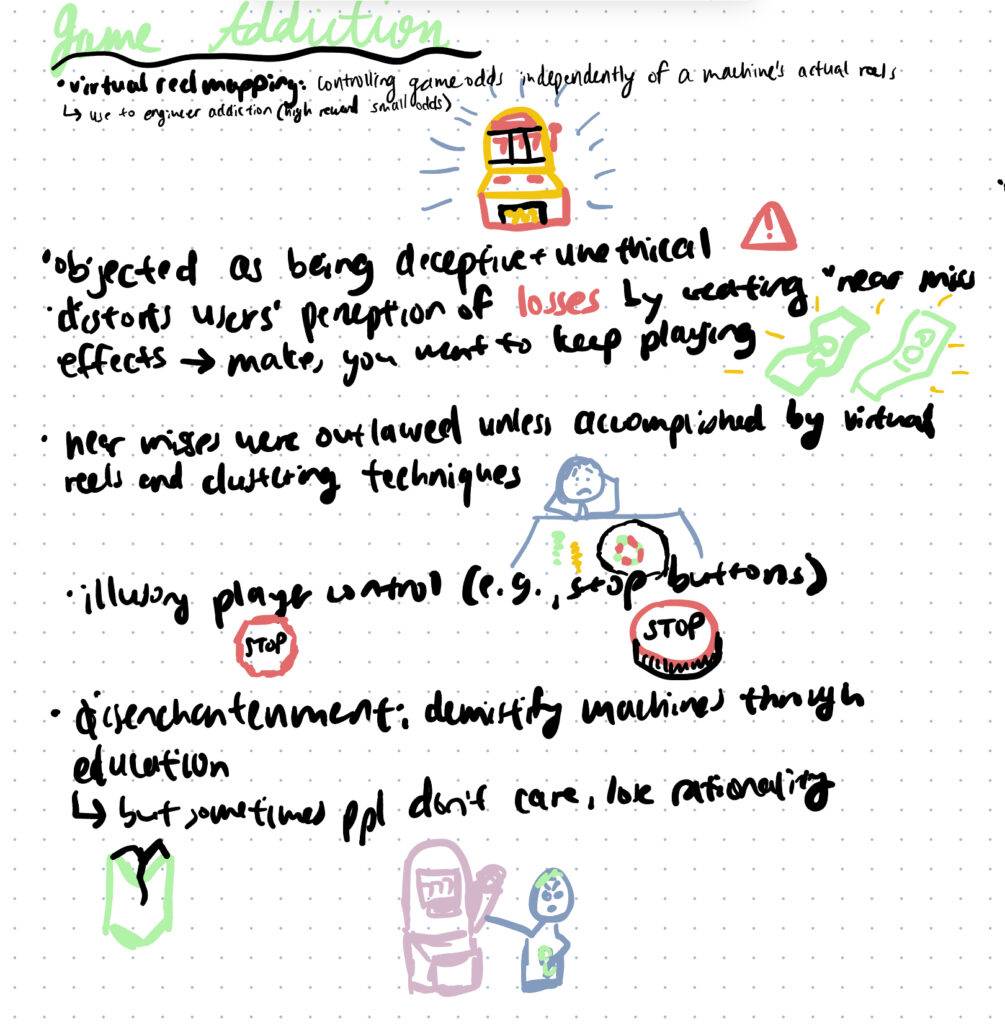 Game Addiction
• virtual reel mapping: controlling game odds independently of a machine's actual reels
↳ use to engineer addiction (high reward small odds)
777
• objected as being deceptive + unethical
!
• distorts users' perception of losses by creating "near miss
effects → make, you want to keep playing
• near misses were outlawed unless accomplished by virtual
reels and clustering techniques
• illusory player control (e.g., stop buttons)
STOP
STOP
• disenchantenment: demistify machines through
education
↳ but sometimes ppl don't care, lose rationality